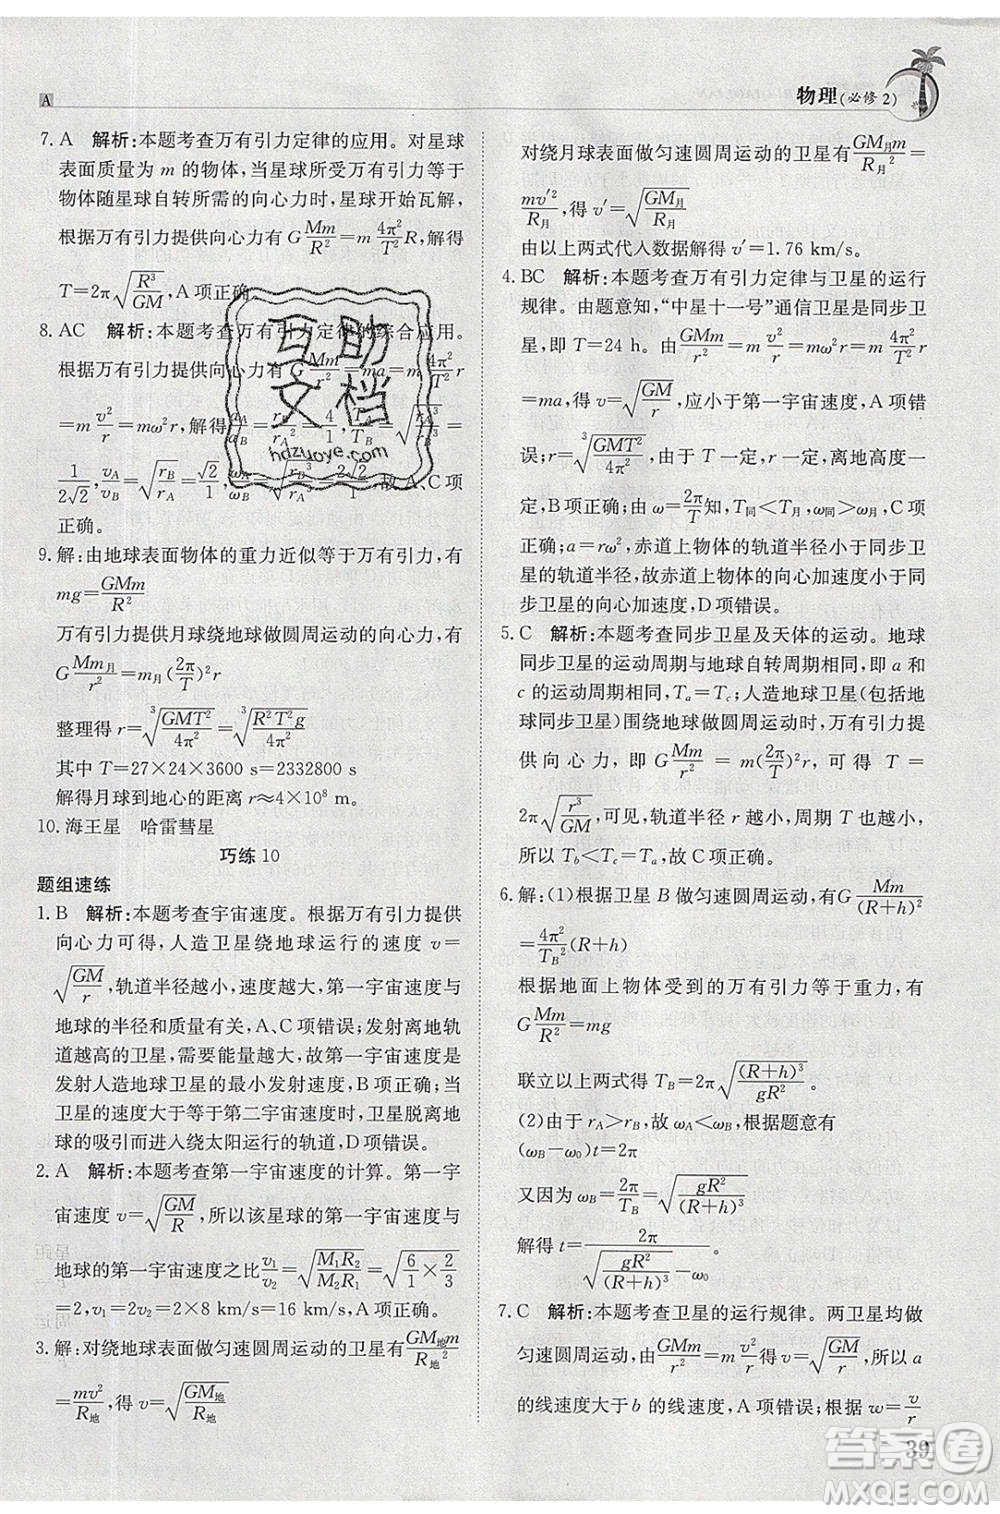 A
物理(必修2)
7. A 解析:本题考查万有引力定律的应用。对星球
表面质量为 m 的物体,当星球对其万有引力等于
物体随星球自转所需的向心力时,星球开始瓦解,
根据万有引力提供向心力 G Mm/R² = m 4π²/T² R,解得
T=2π√(R³/GM),A 项正确。
8. AC 解析:本题考查万有引力定律的综合应用。
根据万有引力提供向心力有 G Mm/r² = ma = m 4π²/T² r
= m v²/r = mω²r,解得
1/(2√2), v_A/v_B = √(r_B/r_A) = √2/1
故 A、C 项
正确。
9. 解:由地球表面物体的重力近似等于万有引力,有
mg = GMm/R²
万有引力提供月球绕地球做圆周运动的向心力,有
G Mm月/r² = m月(2π/T)²r
整理得 r = ³√(GMT²/4π²) = ³√(R²T²g/4π²)
其中 T=27×24×3600 s=2332800 s
解得月球到地心的距离 r≈4×10⁸ m。
10. 海王星 哈雷彗星
巧练 10
题组速练
1. B 解析:本题考查宇宙速度。根据万有引力提供
向心力可得,人造卫星绕地球运行的速度 v=
√(GM/r),轨道半径越小,速度越大,第一宇宙速度与
地球的半径和质量有关,A、C 项错误;发射离地轨
道越高的卫星,需要能量越大,故第一宇宙速度是
发射人造地球卫星的最小发射速度,B 项正确;当
卫星的速度大于等于第二宇宙速度时,卫星脱离地
球的吸引而进入绕太阳运行的轨道,D 项错误。
2. A 解析:本题考查第一宇宙速度的计算。第一宇
宙速度 v = √(GM/R),所以该星球的第一宇宙速度与
地球的第一宇宙速度之比 v₁/v₂ = √(M₁R₂/M₂R₁) = √(6/1 × 2/3)
=2,v₁=2v₂=2×8 km/s=16 km/s,A 项正确。
3. 解:对绕地球表面做匀速圆周运动的卫星有 GM地m/R地²
= mv²/R地,得 v = √(GM地/R地)
对绕月球表面做匀速圆周运动的卫星有 GM月m/R月² =
mv′²/R月,得 v′ = √(GM月/R月)
由以上两式代入数据解得 v′=1.76 km/s。
4. BC 解析:本题考查万有引力定律与卫星的运行
规律。由题意知,“中星十一号”通信卫星是同步卫
星,即 T=24 h。由 GMm/r² = m v²/r = mω²r = m 4π²/T² r
=ma,得 v = √(GM/r),应小于第一宇宙速度,A 项错
误;r = ³√(GMT²/4π²),由于 T 一定,r 一定,离地高度一
定,B 项正确;由 ω=2π/T 知,T同<T月,ω同>ω月,C 项
正确;a=rω²,赤道上物体的轨道半径小于同步卫
星的轨道半径,故赤道上物体的向心加速度小于同
步卫星的向心加速度,D 项错误。
5. C 解析:本题考查同步卫星及天体的运动。地球
同步卫星的运动周期与地球自转周期相同,即 a 和
c 的运动周期相同,Tₐ=T_c;人造地球卫星(包括地
球同步卫星)围绕地球做圆周运动时,万有引力提
供向心力,即 G Mm/r² = m(2π/T)²r,得 T =
2π√(r³/GM),轨道半径 r 越小,周期 T 也越小,
所以 T_b<T_c=Tₐ,故 C 项正确。
6. 解:(1)根据卫星 B 做匀速圆周运动,有 G Mm/(R+h)²
= m 4π²/T_B² (R+h)
根据地面上物体受到的万有引力等于重力,有
G Mm/R² = mg
联立以上两式得 T_B = 2π√((R+h)³/gR²)。
(2)由于 r_A>r_B,故 ω_A<ω_B,根据题意有
(ω_B-ω₀)t=2π
又因为 ω_B = 2π/T_B = √(gR²/(R+h)³)
解得 t = 2π/(√(gR²/(R+h)³) - ω₀)。
7. C 解析:本题考查卫星的运行规律。两卫星均做
匀速圆周运动,由 GMm/r² = m v²/r 得 v = √(GM/r),所以 a
的线速度大于 b 的线速度,A 项错误;根据 w = v/r
39
互助
文档
hdzuoye.com
答案圈
MXQE.COM